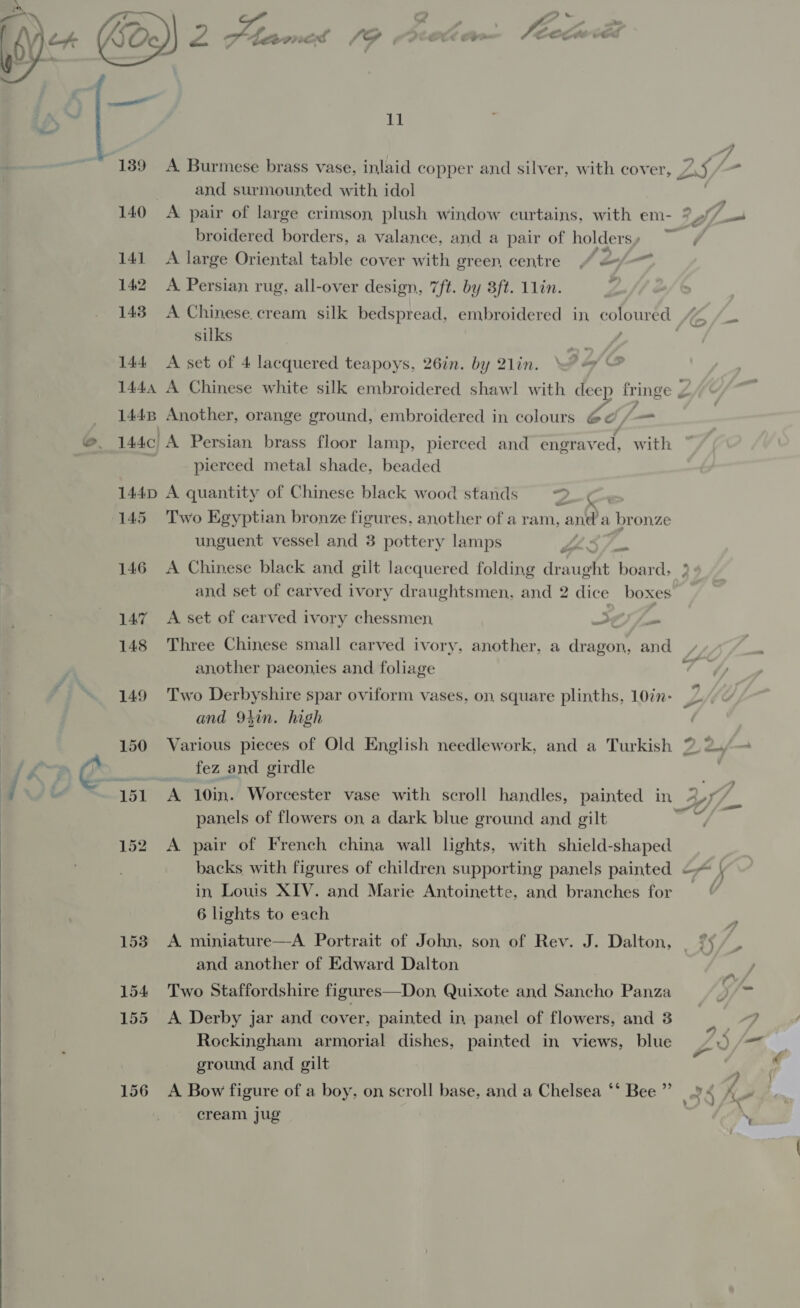 2 Framed
11
139 A Burmese brass vase, inlaid copper and silver, with cover, 25/-
and surmounted with idol
140 A pair of large crimson plush window curtains, with em-
broidered borders, a valance, and a pair of holders,
141 A large Oriental table cover with green centre
142 A Persian rug, all-over design, 7ft. by 3ft. 11in.
143 A Chinese cream silk bedspread, embroidered in coloured
silks
144 A set of 4 lacquered teapoys, 26in. by 21in.
144A A Chinese white silk embroidered shawl with deep fringe
144B Another, orange ground, embroidered in colours 60/-
144C A Persian brass floor lamp, pierced and engraved, with
pierced metal shade, beaded
144D A quantity of Chinese black wood stands
145 Two Egyptian bronze figures, another of a ram, and a bronze
unguent vessel and 3 pottery lamps
146 A Chinese black and gilt lacquered folding draught board,
and set of carved ivory draughtsmen, and 2 dice boxes
147 A set of carved ivory chessmen
148 Three Chinese small carved ivory, another, a dragon, and
another paeonies and foliage
149 Two Derbyshire spar oviform vases, on square plinths, 10in-
and 9½in. high
150 Various pieces of Old English needlework, and a Turkish
fez and girdle
151 A 10in. Worcester vase with scroll handles, painted in
panels of flowers on a dark blue ground and gilt
152 A pair of French china wall lights, with shield-shaped
backs with figures of children supporting panels painted
in Louis XIV. and Marie Antoinette, and branches for
6 lights to each
153 A miniature—A Portrait of John, son of Rev. J. Dalton,
and another of Edward Dalton
154 Two Staffordshire figures—Don Quixote and Sancho Panza
155 A Derby jar and cover, painted in panel of flowers, and 3
Rockingham armorial dishes, painted in views, blue
ground and gilt
156 A Bow figure of a boy, on scroll base, and a Chelsea “ Bee ”
cream jug